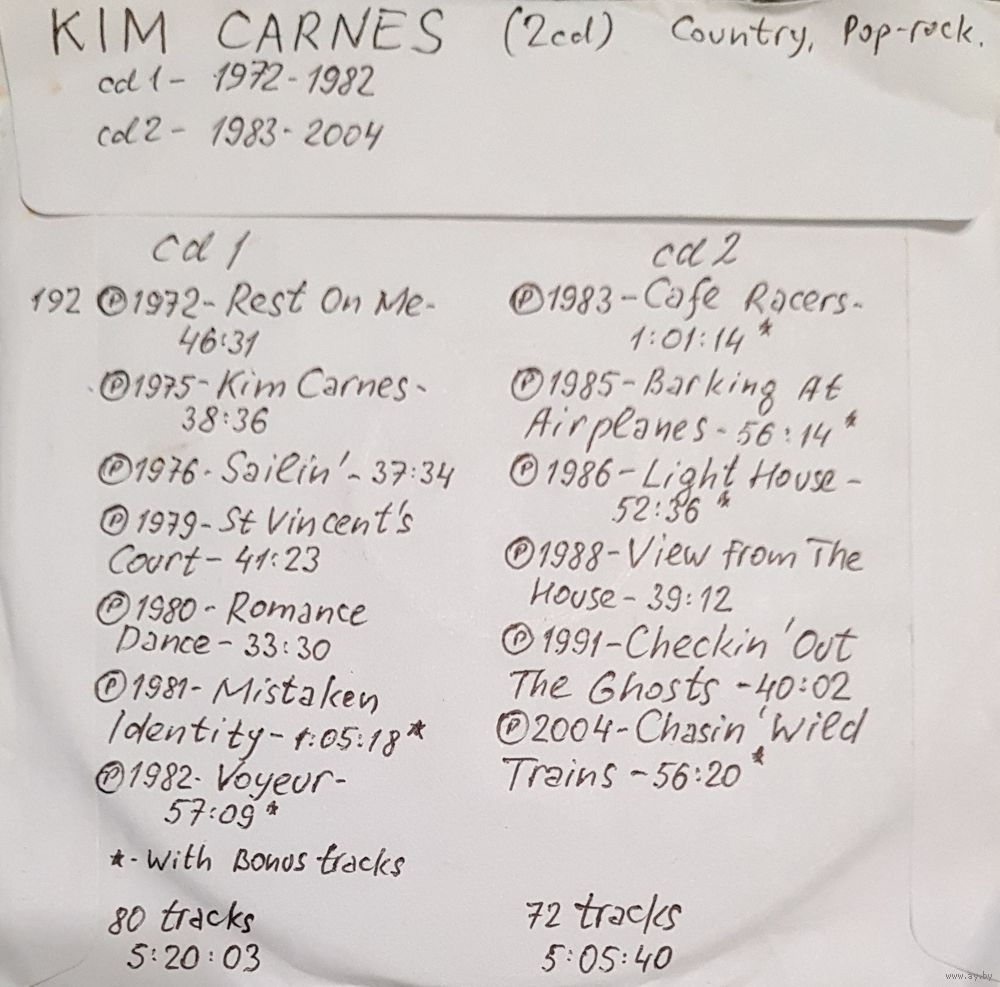 KIM CARNES (2cd) Country, Pop-rock.
cd 1 - 1972-1982
cd 2 - 1983-2004
cd 1
192 Ⓟ1972-Rest On Me-
46:31
Ⓟ1975-Kim Carnes-
38:36
Ⓟ1976-Sailin'-37:34
Ⓟ1979-St Vincent's
Court-41:23
Ⓟ1980-Romance
Dance-33:30
Ⓟ1981-Mistaken
Identity-1:05:18*
Ⓟ1982-Voyeur-
57:09*
*-With Bonus tracks
80 tracks
5:20:03
cd 2
Ⓟ1983-Cafe Racers-
1:01:14*
Ⓟ1985-Barking At
Airplanes-56:14*
Ⓟ1986-Light House-
52:36*
Ⓟ1988-View from The
House-39:12
Ⓟ1991-Checkin'Out
The Ghosts-40:02
Ⓟ2004-Chasin'Wild
Trains-56:20*
72 tracks
5:05:40
www.ay.by